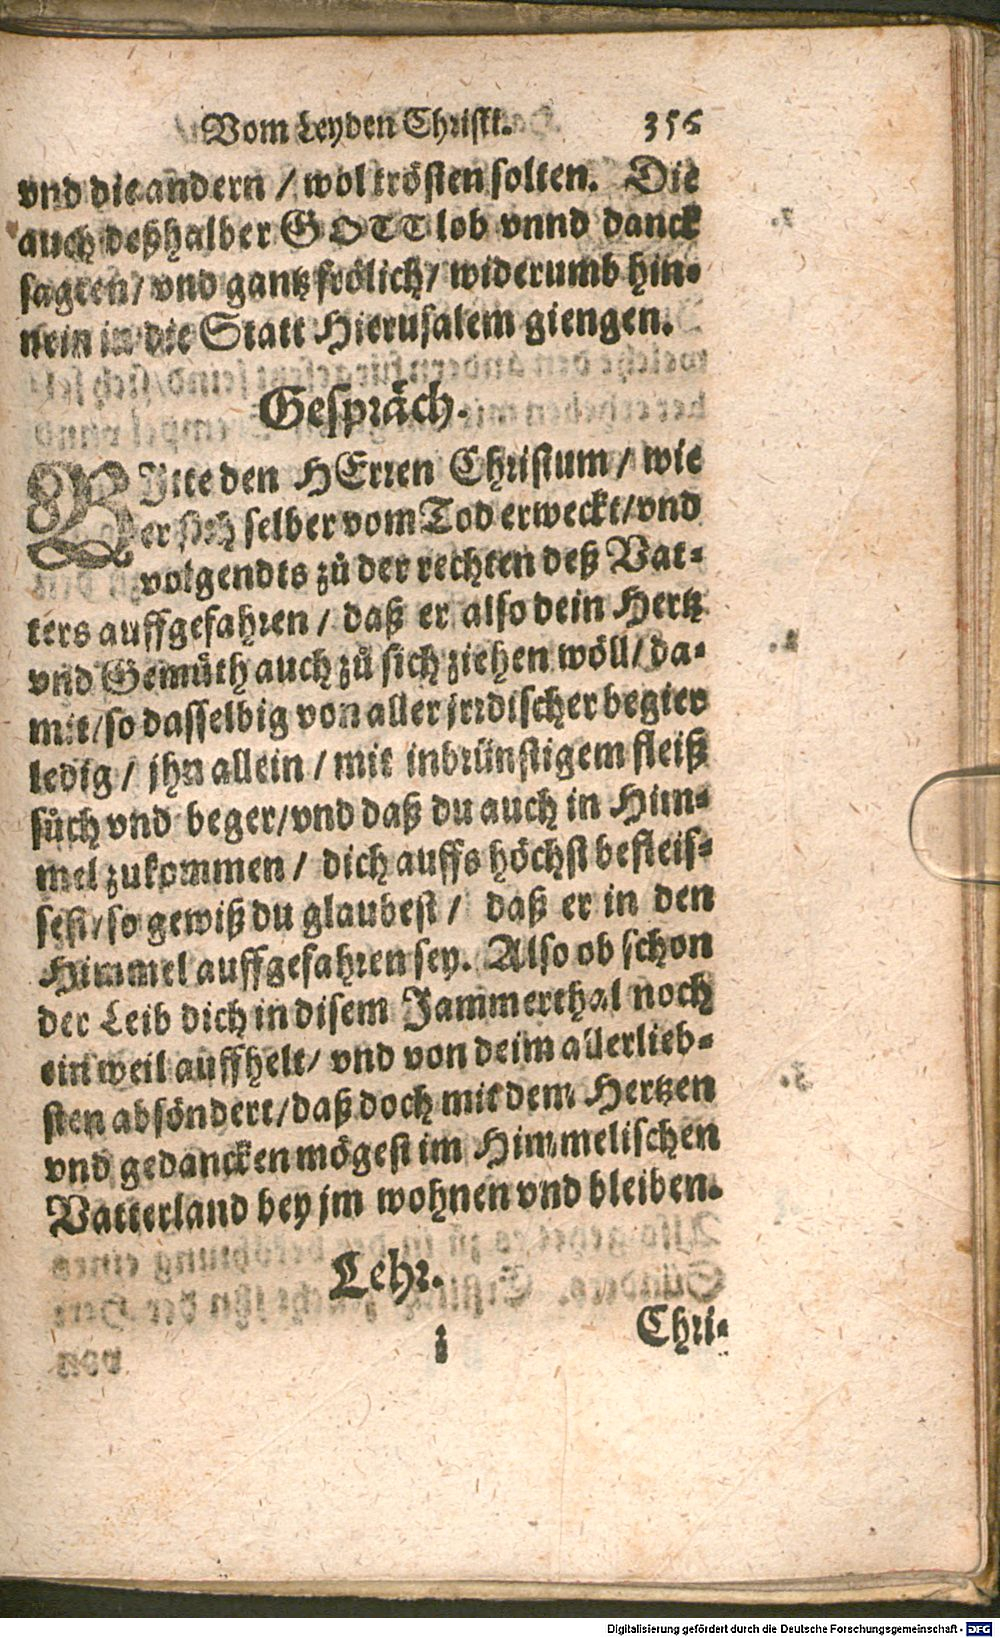 Vom Leyden Christi. 356
vnd die andern / wol trösten solten. Die
auch deßhalber GOTT lob vnnd danck
sagten / vnd gantz frölich / widerumb hin-
nein in die Statt Hierusalem giengen.
Gespräch.
BItte den HErren Christum / wie
er sich selber vom Tod erweckt / vnd
volgendts zů der rechten deß Vat-
ters auffgefahren / daß er also dein Hertz
vnd Gemüth auch zů sich ziehen wöll / da-
mit / so dasselbig von aller jrrdischer begird
ledig / jhn allein / mit inbrünstigem fleiß
sůch vnd beger / vnd daß du auch in Him-
mel zukommen / dich auffs höchst befleis-
sest / so gewiß du glaubest / daß er in den
Himmel auffgefahren sey. Also ob schon
der Leib dich in disem Jammerthal noch
ein weil auffhelt / vnd von deim allerlieb-
sten absöndert / daß doch mit dem Hertzen
vnd gedancken mögest im Himmelischen
Vatterland bey jm wohnen vnd bleiben.
Lehr.
Chri-
Digitalisierung gefördert durch die Deutsche Forschungsgemeinschaft - DFG